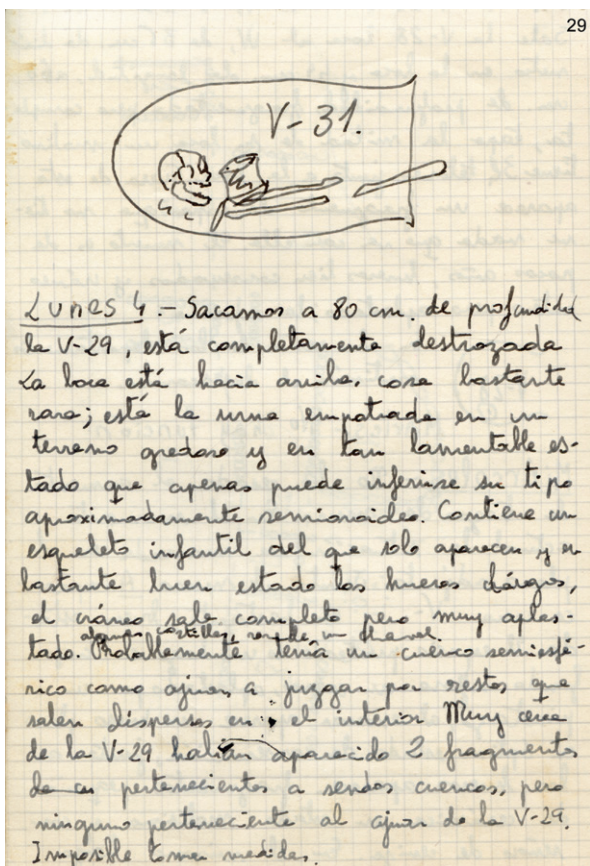 29
V-31.
Lunes 4.- Sacamos a 80 cm. de profundidad
la V-29, está completamente destrozada
La boca está hacia arriba, cosa bastante
rara; está la urna empotrada en un
terreno gredoso y en tan lamentable es-
tado que apenas puede inferirse su tipo
aproximadamente semionoideo. Contiene un
esqueleto infantil del que solo aparecen y en
bastante buen estado los huesos largos,
el cráneo sale completo pero muy aplas-
algunas costillas, son de un
tado. Probablemente tenía un cuenco semiesfé-
rico como ajuar, a juzgar por restos que
salen dispersos en el interior Muy cerca
de la V-29 habían aparecido 2 fragmentos
pertenecientes a sendos cuencos, pero
ninguno perteneciente al ajuar de la V-29.
Imposible tomar medidas.